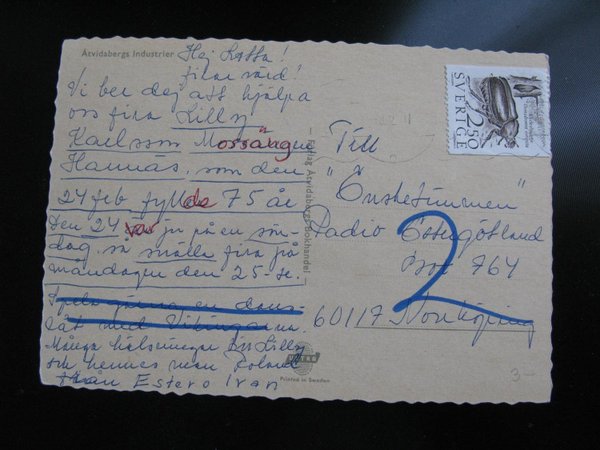 Åtvidabergs Industrier
Hej Lotta!
firar värd!
Vi ber dej att hjälpa
oss fira Lilly
Karlsson Mossängen
Hannäs, som den
24 feb fyllde 75 år
Den 24 är ju på en sön-
dag, så snälla fira på
måndagen den 25-te.
Spela gärna en dans-
låt med Vikingarna.
Många hälsningar till Lilly
och hennes man Roland
från Estero Ivan
Förlag Åtvidabergs Bokhandel
Printed in Sweden
SVERIGE
2.50
Till
"Önsketimmen"
Radio Östergötland
Box 764
60117 Norrköping
2